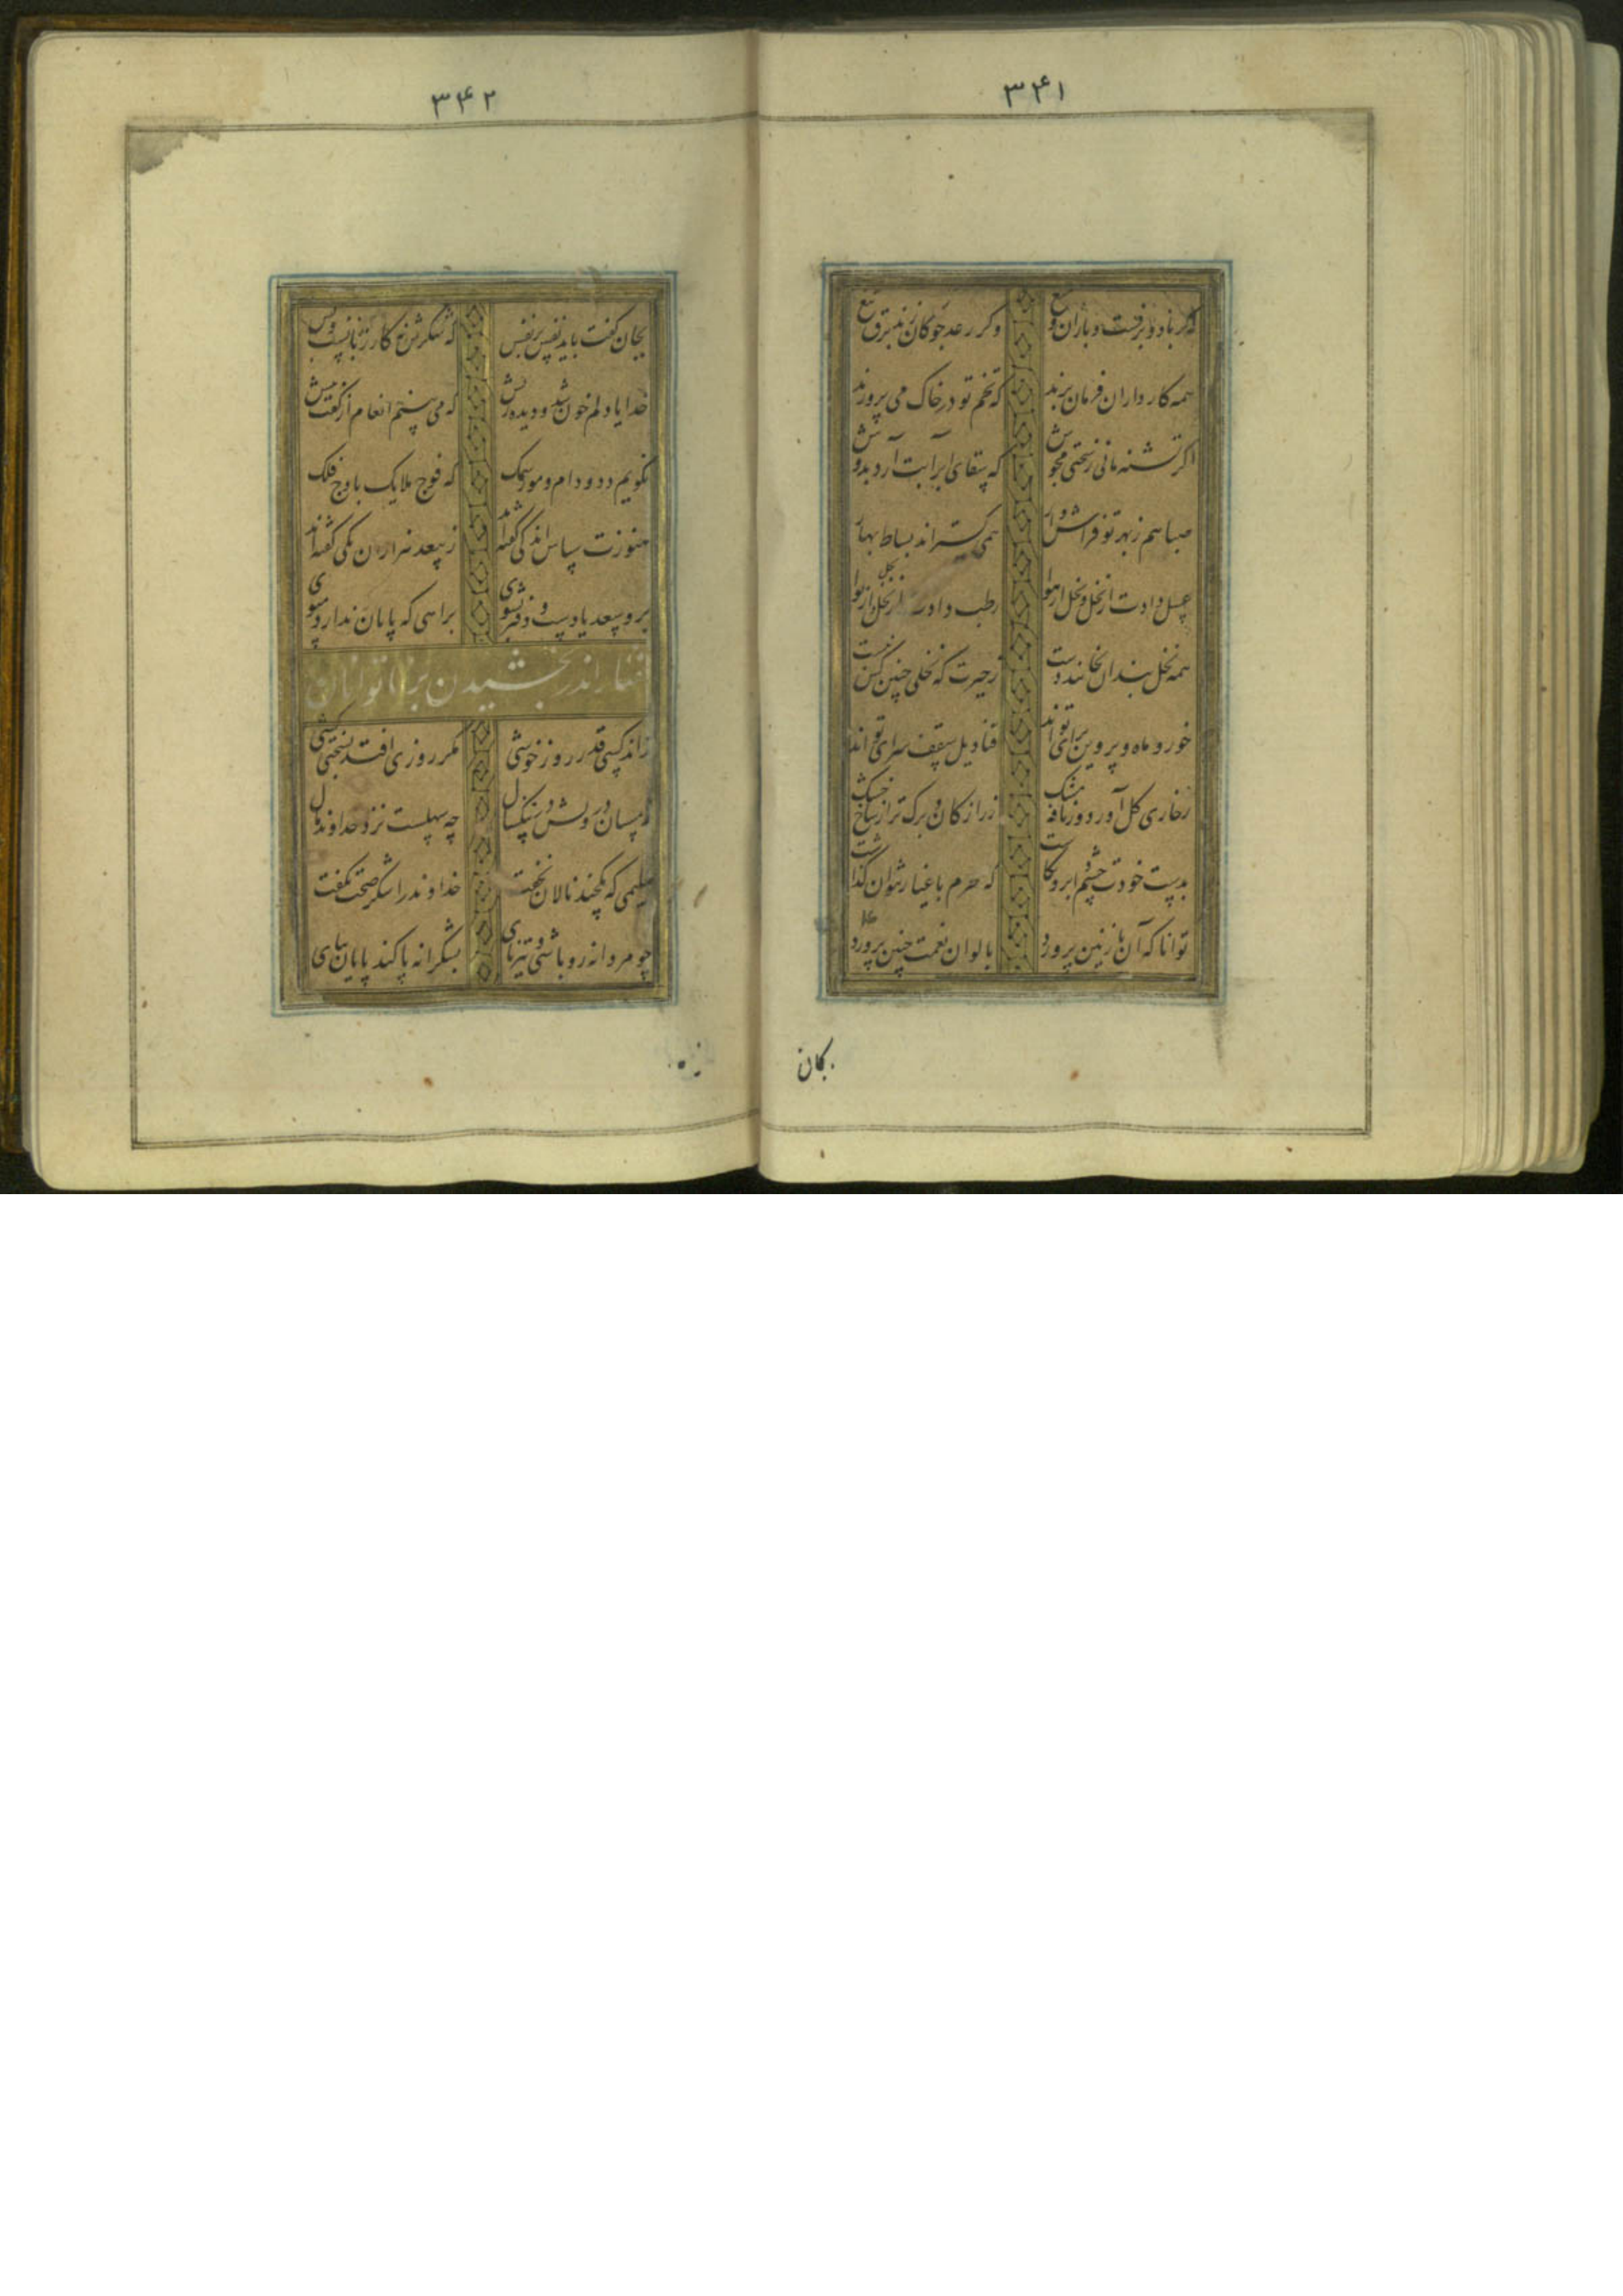 ۳۴۱
اگر باد و برفست و باران و میغ وگر رعد چوگان زند برق تیغ
همه کارداران فرمان برند که تخم تو در خاک می پرورند
اگر تشنه مانی ز سختی مجوش که سقای ابر آبت آرد بدوش
صبا هم ز بهر تو فراش وار همی گستراند بساط بهار
عسل دادت از نحل و نحل از هوا رطب دادت از نخل و نخل از نوا
همه نخل بندان بخایند دست ز حیرت که نخلی چنین کس نبست
خور و ماه و پروین برای تو اند قنادیل سقف سرای تو اند
ز خاری گل آورد و از نافه مشک زر از کان و برگ تر از شاخ خشک
بدست خودت چشم و ابرو نگاشت که محرم باغیار نتوان گذاشت
توانا که آن نازنین پرورد بالوان نعمت چنین پرورد
بجان
۳۴۲
بجان گفت باید نفس بر نفس که شکرش نه کار زبانست و بس
خدایا دلم خون شد و دیده ریش که می بینم انعام از گفت بیش
نگویم دد و دام و مور و سمک که فوج ملایک باوج فلک
هنوزت سپاس اندکی گفته اند ز بیعد هزاران یکی گفته اند
برو سعدیا دست و دفتر بشوی براهی که پایان ندارد مپوی
گفتار اندر بخشیدن بر ناتوانان
نداند کسی قدر روز خوشی مگر روزی افتد بسختی کشی
زمستان درویش در تنگ سال چه سهلست نزد خداوند مال
سلیمی که یکچند نالان نخفت خداوند را شکر صحت نگفت
چو مردانه رو باشی و تیز پای بشکرانه پا کند پایان بپای